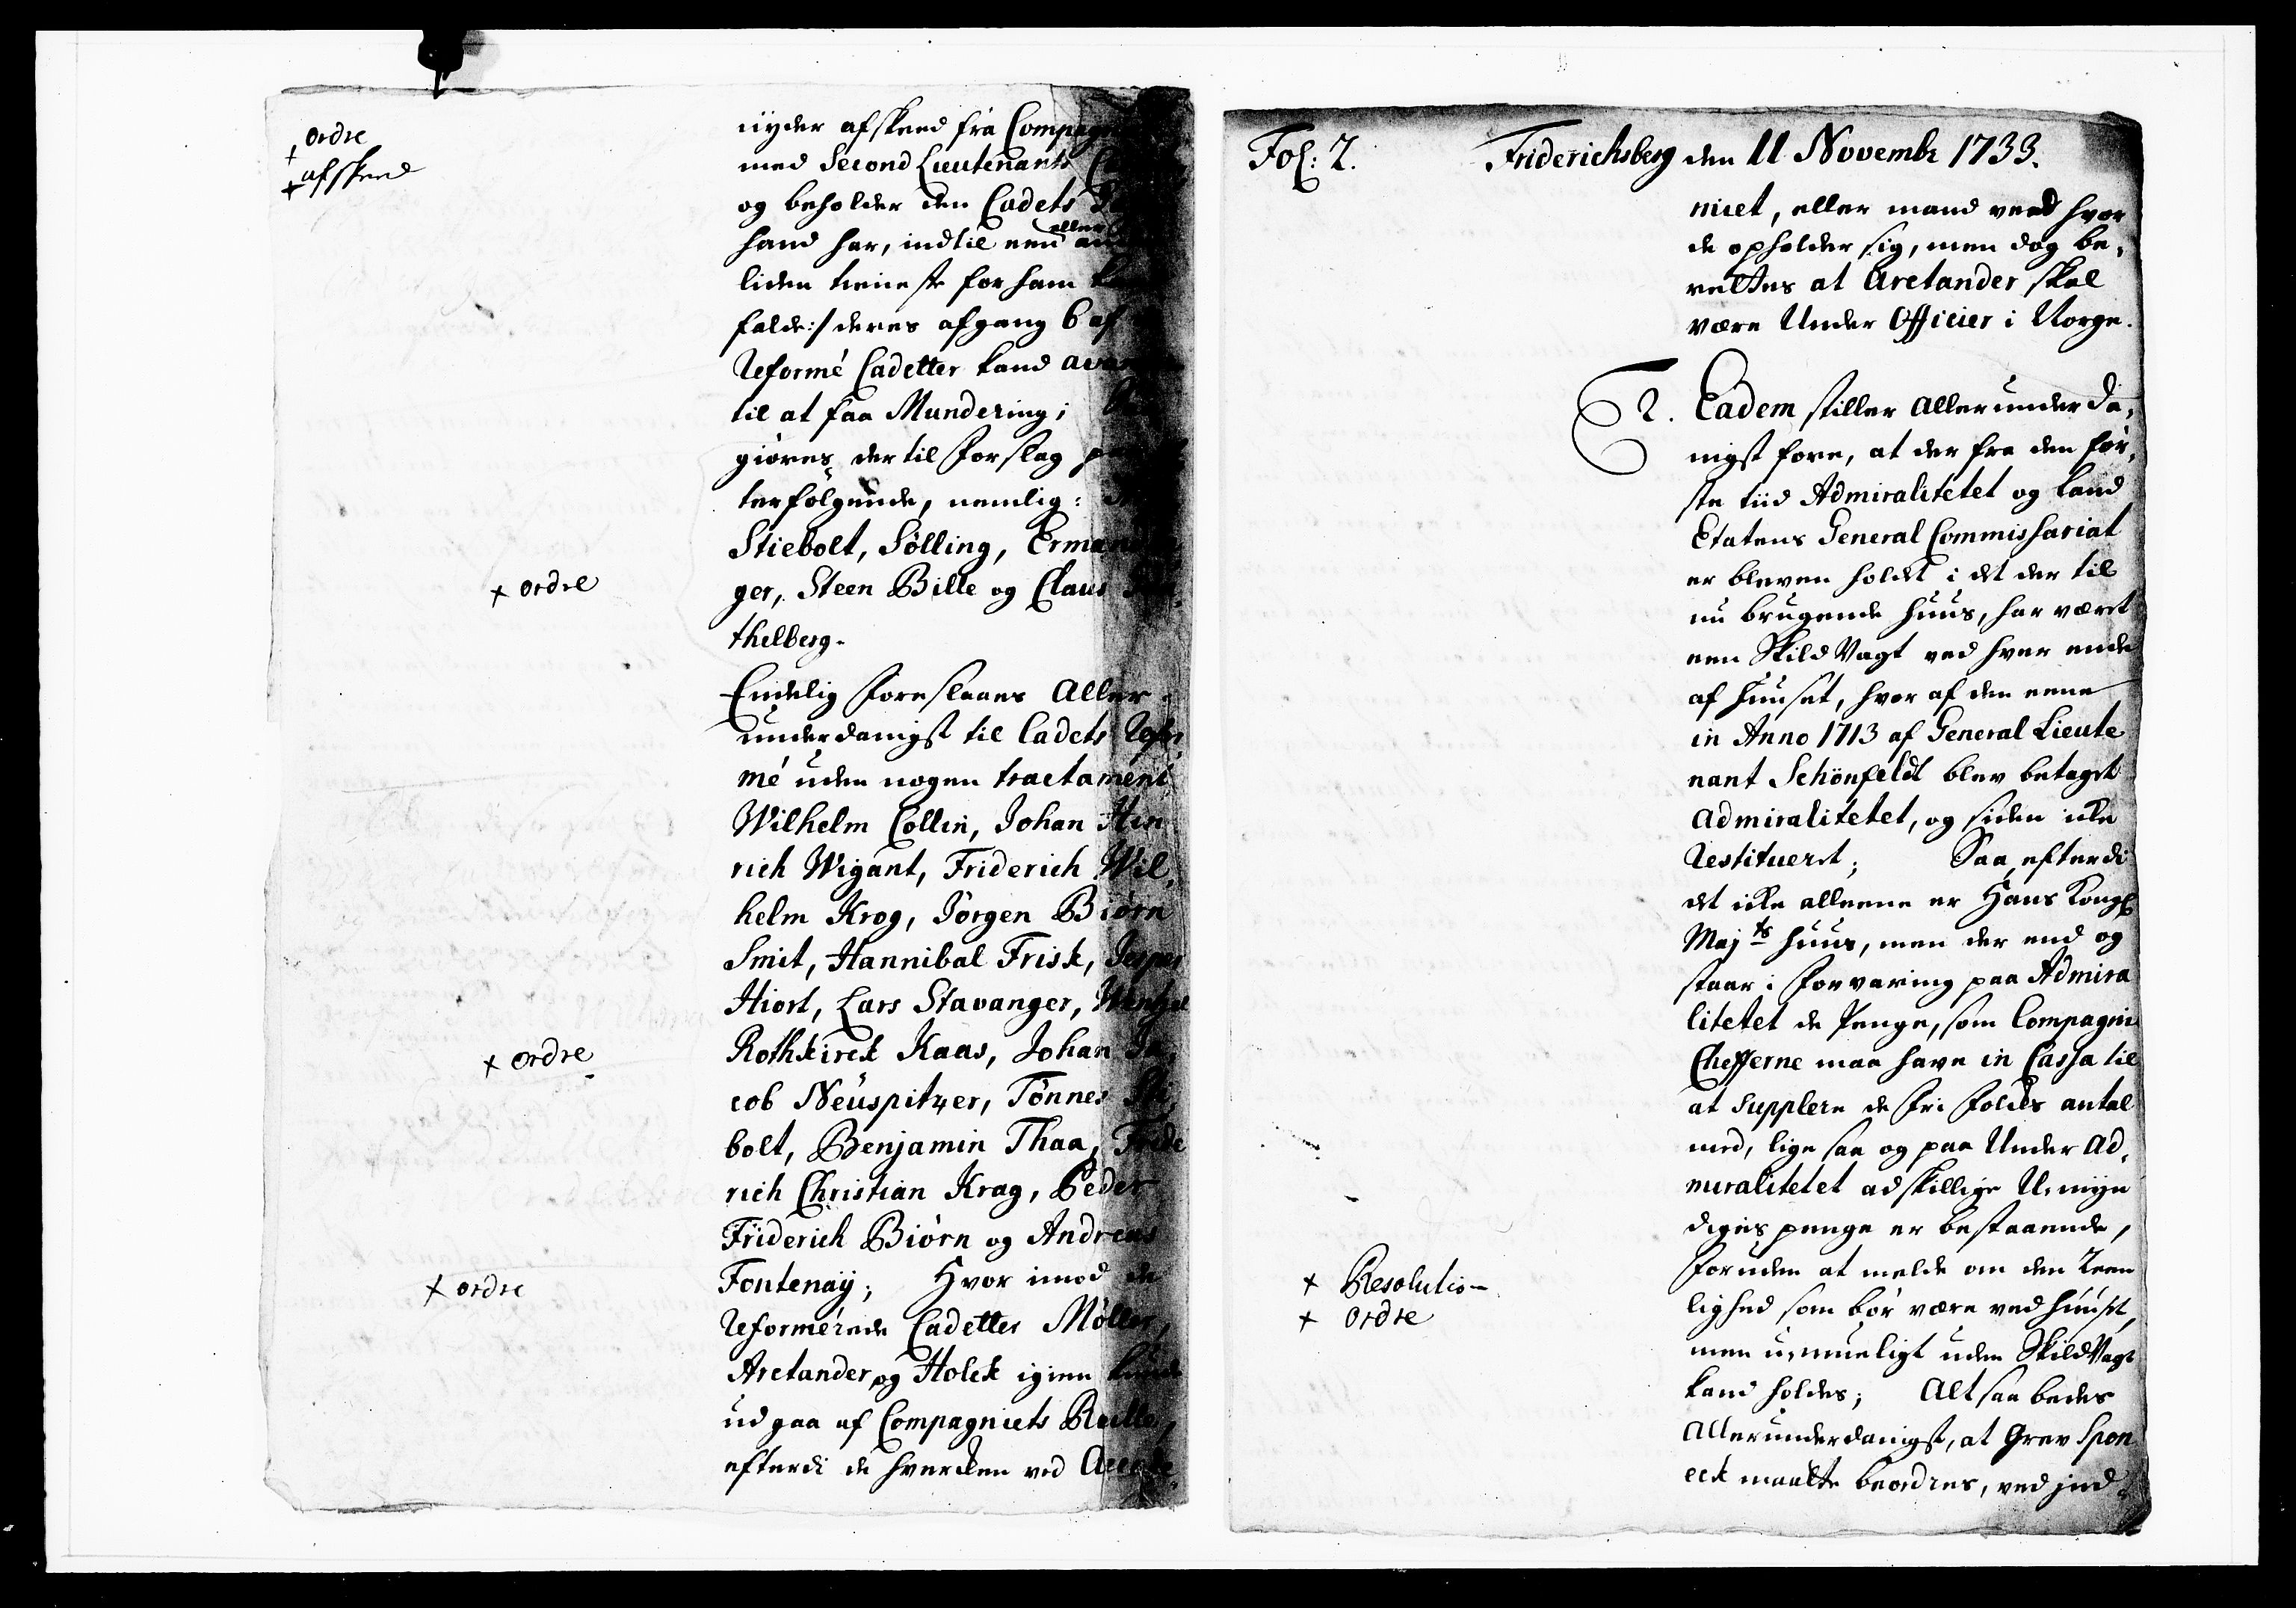 + ordre
+ afskeed
nyder afskeed fra
med Second Lieutenants
og beholder den Cadets
hand har, indtil een eller
liden tieneste for ham
falde:/ deres afgang 6 af
Reformé Cadetter kand
til at faa Mundering;
giøres der til forslag
terfølgende, nemlig:
Stiebolt, Sølling,
+ ordre
ger, Steen Bille og Claus
thelberg.
Endelig foreslaaes Aller
underdanigst til Cadets Refor,
mé uden nogen tractament
Wilhelm Collin, Johan Hin
rich Wigant, Friderich Wil,
helm Krog, Jørgen Biørn
Smit, Hannibal Frisk, Jesper
Hiort, Lars Stavanger, Wentzel
+ ordre
Rothkirck Kaas, Johan Ja,
cob Neuspitzer, Tønnes
bolt, Benjamin Thaa, Fride
rich Christian Krag, Peder
Friderich Biørn og Andreas
+ ordre
Fontenaÿ; Hvor imod de
Reformérede Cadetter Møller,
Aretander og Holck igien kunde
udgaa af Compagniets Rulle,
efterdi de hverken ved
Fol: 2. Friderichsberg den 11 Novembr 1733.
niet, eller mand veed hvor
de opholder sig, men dog be,
rettes at Aretander skal
være Under Officier i Norge.
2. Eadem stiller Allerunderda,
nigst fore, at der fra den før,
ste tiid Admiralitetet og Land
Etatens General Commissariat
er bleven holdt i det der til
nu brugende huus, har været
een Skild Vagt ved hver ende
af huuset, hvor af den eene
in Anno 1713 af General Lieute
nant Schönfeldt blev betaget
Admiralitetet, og siden icke
Restitueret; Saa, efterdi
det icke alleene er Hans Kongl
Majts huus, men der end og
staar i forvaring paa Admira
litetet de Penge, som Compagnie
Chefferne maa have in Cassa til
at Supplere de fri folckes antal
med, lige saa og paa Under Ad,
miralitetet adskillige U,myn
diges penge er bestaaende,
+ Resolution
foruden at melde om den Reen
+ Ordre
lighed som bør være ved huuset,
men u,mueligt uden Skild Vagt
kand holdes; Alt saa bedes
Allerunderdanigst, at Grev Spon
eck maatte beordres, ved ind,